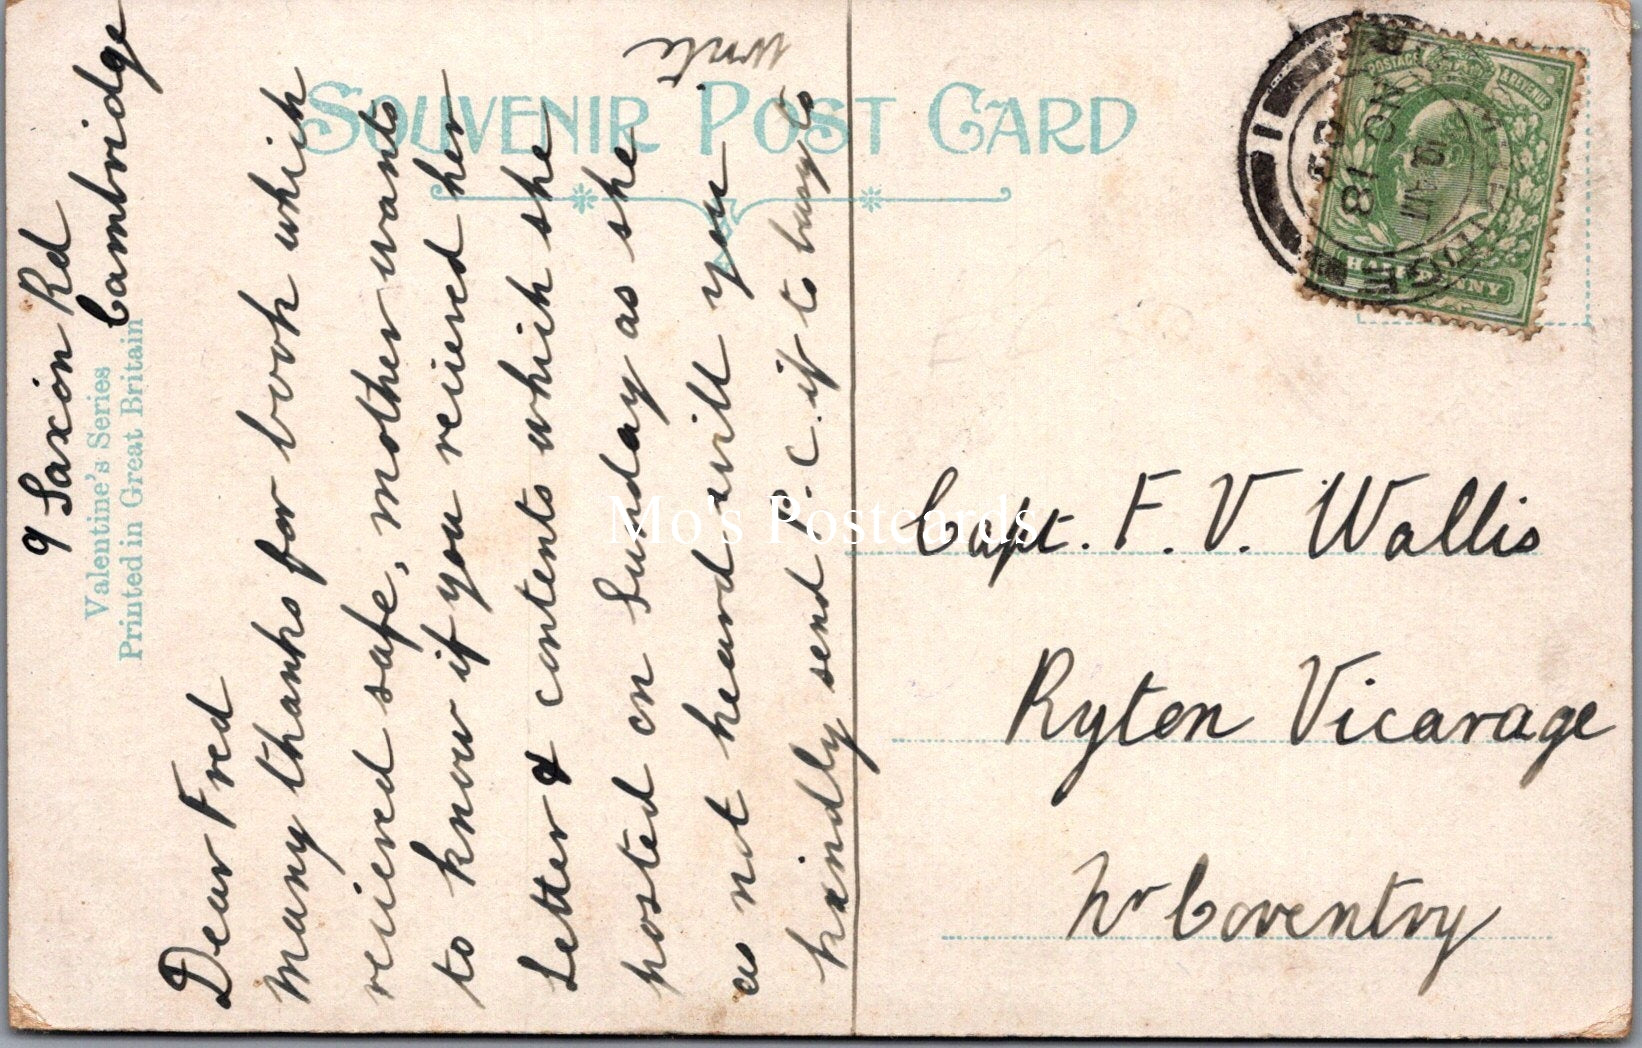 SOUVENIR POST CARD
Valentine's Series
Printed in Great Britain
9 Saxon Rd
Cambridge
Dear Fred
Many thanks for book which
recieved safe, mother wants
to know if you recieved her
Letter & contents which she
posted on Sunday as she
as not heard will you
kindly send P.C. if to busy to
write
Capt. F. V. Wallis
Ryton Vicarage
Nr Coventry
POSTAGE & REVENUE
HALFPENNY
Mo's Postcards